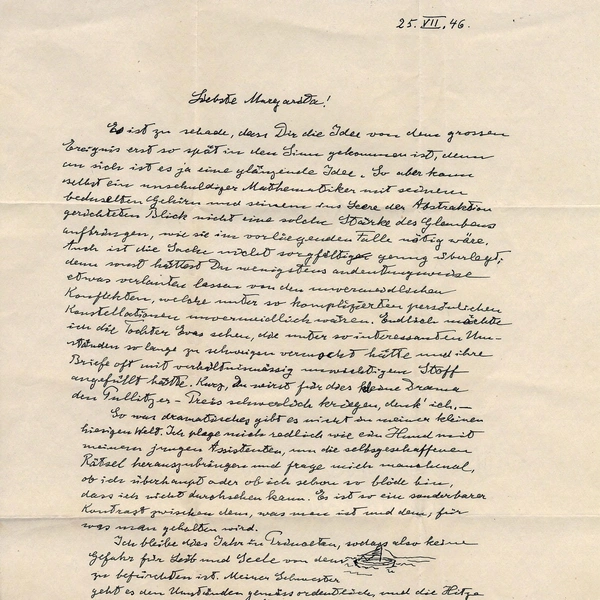 25. VII. 46.
Liebste Margarita!
Es ist zu schade, dass Dir die Idee von dem grossen
Ereignis erst so spät in den Sinn gekommen ist, denn
an sich ist es ja eine glänzende Idee. So aber kann
selbst ein unschuldiger Mathematiker mit seinem
beduselten Gehirn und seinem ins Leere der Abstraktion
gerichteten Blick nicht eine solche Stärke des Glaubens
aufbringen, wie sie im vorliegenden Falle nötig wäre.
Auch ist die Sache nicht sorgfältig genug überlegt;
denn sonst hättest Du wenigstens andeutungsweise
etwas verlauten lassen von den unvermeidlichen
Konflikten, welche unter so komplizierten persönlichen
Konstellationen unvermeidlich wären. Endlich möchte
ich die Tochter Evas sehen, die unter so interessanten Um-
ständen so lange zu schweigen vermocht hätte und ihre
Briefe oft mit verhältnismässig unwichtigem Stoff
angefüllt hätte. Kurz, Du wirst für dies kleine Drama
den Pullitzer-Preis schwerlich kriegen, denk' ich.—
So was dramatisches gibt es nicht in meiner kleinen
hiesigen Welt. Ich plage mich redlich wie ein Hund mit
meinem jungen Assistenten, um die selbstgeschaffenen
Rätsel herauszubringen und frage mich manchmal,
ob ich überhaupt oder ob ich schon so blöde bin,
dass ich nicht durchsehen kann. Es ist so ein sonderbarer
Kontrast zwischen dem, was man ist und dem, für
was man gehalten wird.
Ich bleibe dies Jahr in Princeton, sodass also keine
Gefahr für Leib und Seele von dem
zu befürchten ist. Meiner Schwester
geht es den Umständen gemäss ordentlich, und die Hitze